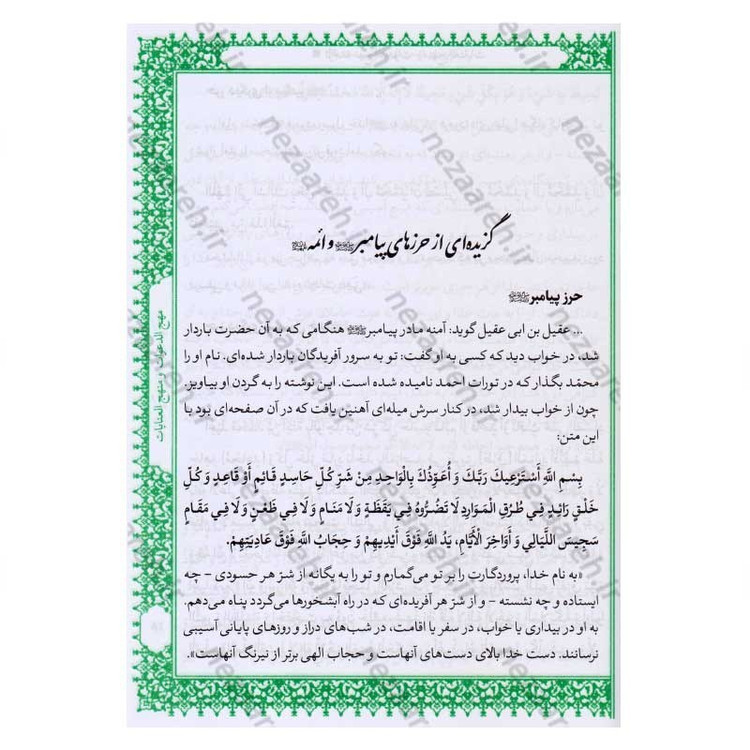 گزیده‌ای از حرزهای پیامبر ﷺ و ائمه
حرز پیامبر ﷺ
... عقیل بن ابی عقیل گوید: آمنه مادر پیامبر ﷺ هنگامی که به آن حضرت باردار
شد، در خواب دید که کسی به او گفت: تو به سرور آفریدگان باردار شده‌ای. نام او را
محمّد بگذار که در تورات احمد نامیده شده است. این نوشته را به گردن او بیاویز.
چون از خواب بیدار شد، در کنار سرش میله‌ای آهنین یافت که در آن صفحه‌ای بود با
این متن:
بِسْمِ اللَّهِ أَسْتَرْعِیكَ رَبَّكَ وَ أُعَوِّذُكَ بِالْوَاحِدِ مِنْ شَرِّ كُلِّ حَاسِدٍ قَائِمٍ أَوْ قَاعِدٍ وَ كُلِّ
خَلْقٍ رَائِدٍ فِي طُرُقِ الْمَوَارِدِ لَا تَضُرُّوهُ فِي یَقَظَةٍ وَ لَا مَنَامٍ وَ لَا فِي ظَعْنٍ وَ لَا فِي مَقَامٍ
سَجِیسَ اللَّیَالِي وَ أَوَاخِرَ الْأَیَّامِ، یَدُ اللَّهِ فَوْقَ أَیْدِیهِمْ وَ حِجَابُ اللَّهِ فَوْقَ عَادِیَتِهِمْ.
«به نام خدا، پروردگارت را بر تو می‌گمارم و تو را به یگانه از شرّ هر حسودی - چه
ایستاده و چه نشسته - و از شرّ هر آفریده‌ای که در راه آبشخورها می‌گردد پناه می‌دهم.
به او در بیداری یا خواب، در سفر یا اقامت، در شب‌های دراز و روزهای پایانی آسیبی
نرسانند. دست خدا بالای دست‌های آنهاست و حجاب الهی برتر از نیرنگ آنهاست».
مهج الدعوات و منهج العنایات
nezaareh.ir